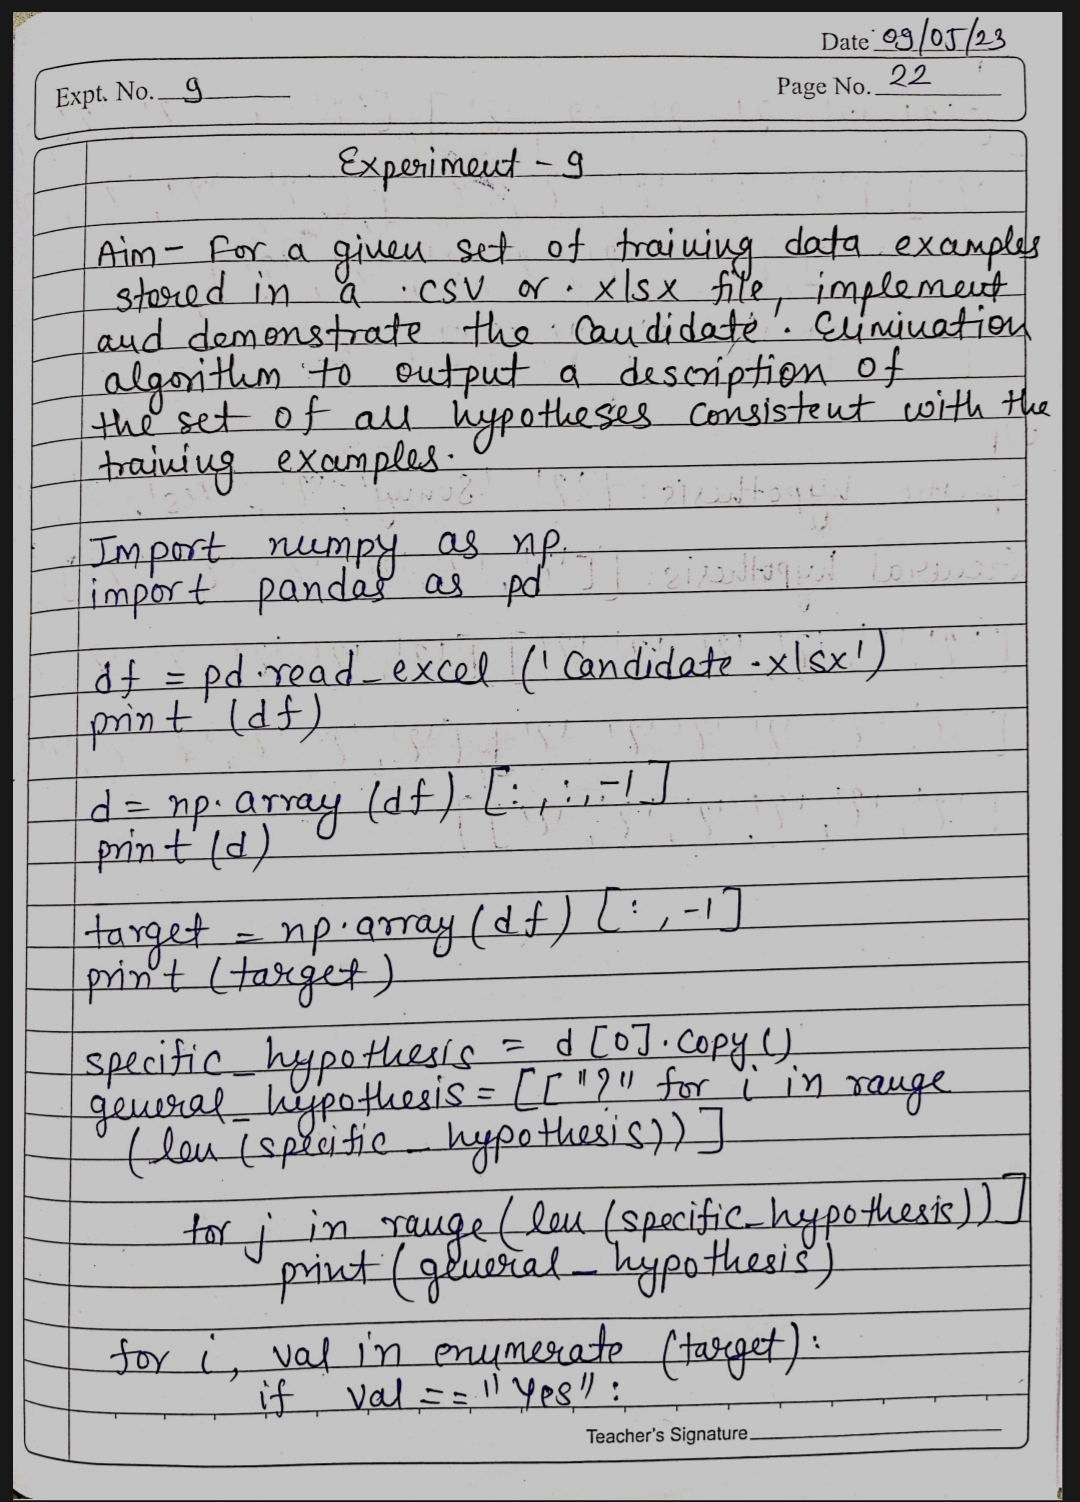 Date 09/05/23
Expt. No. 9
Page No. 22
Experiment - 9
Aim - For a given set of training data examples
stored in a .csv or .xlsx file, implement
and demonstrate the Candidate Elimination
algorithm to output a description of
the set of all hypotheses consistent with the
training examples.
Import numpy as np.
import pandas as pd
df = pd.read_excel ('Candidate.xlsx')
print (df)
d = np.array (df) [:,:,-1]
print (d)
target = np.array (df) [:,-1]
print (target)
specific_hypothesis = d [0].copy ()
general_hypothesis = [["?" for i in range
(len (specific_hypothesis))]
for j in range (len (specific_hypothesis))]
print (general_hypothesis)
for i, val in enumerate (target):
if val == "Yes":
Teacher's Signature